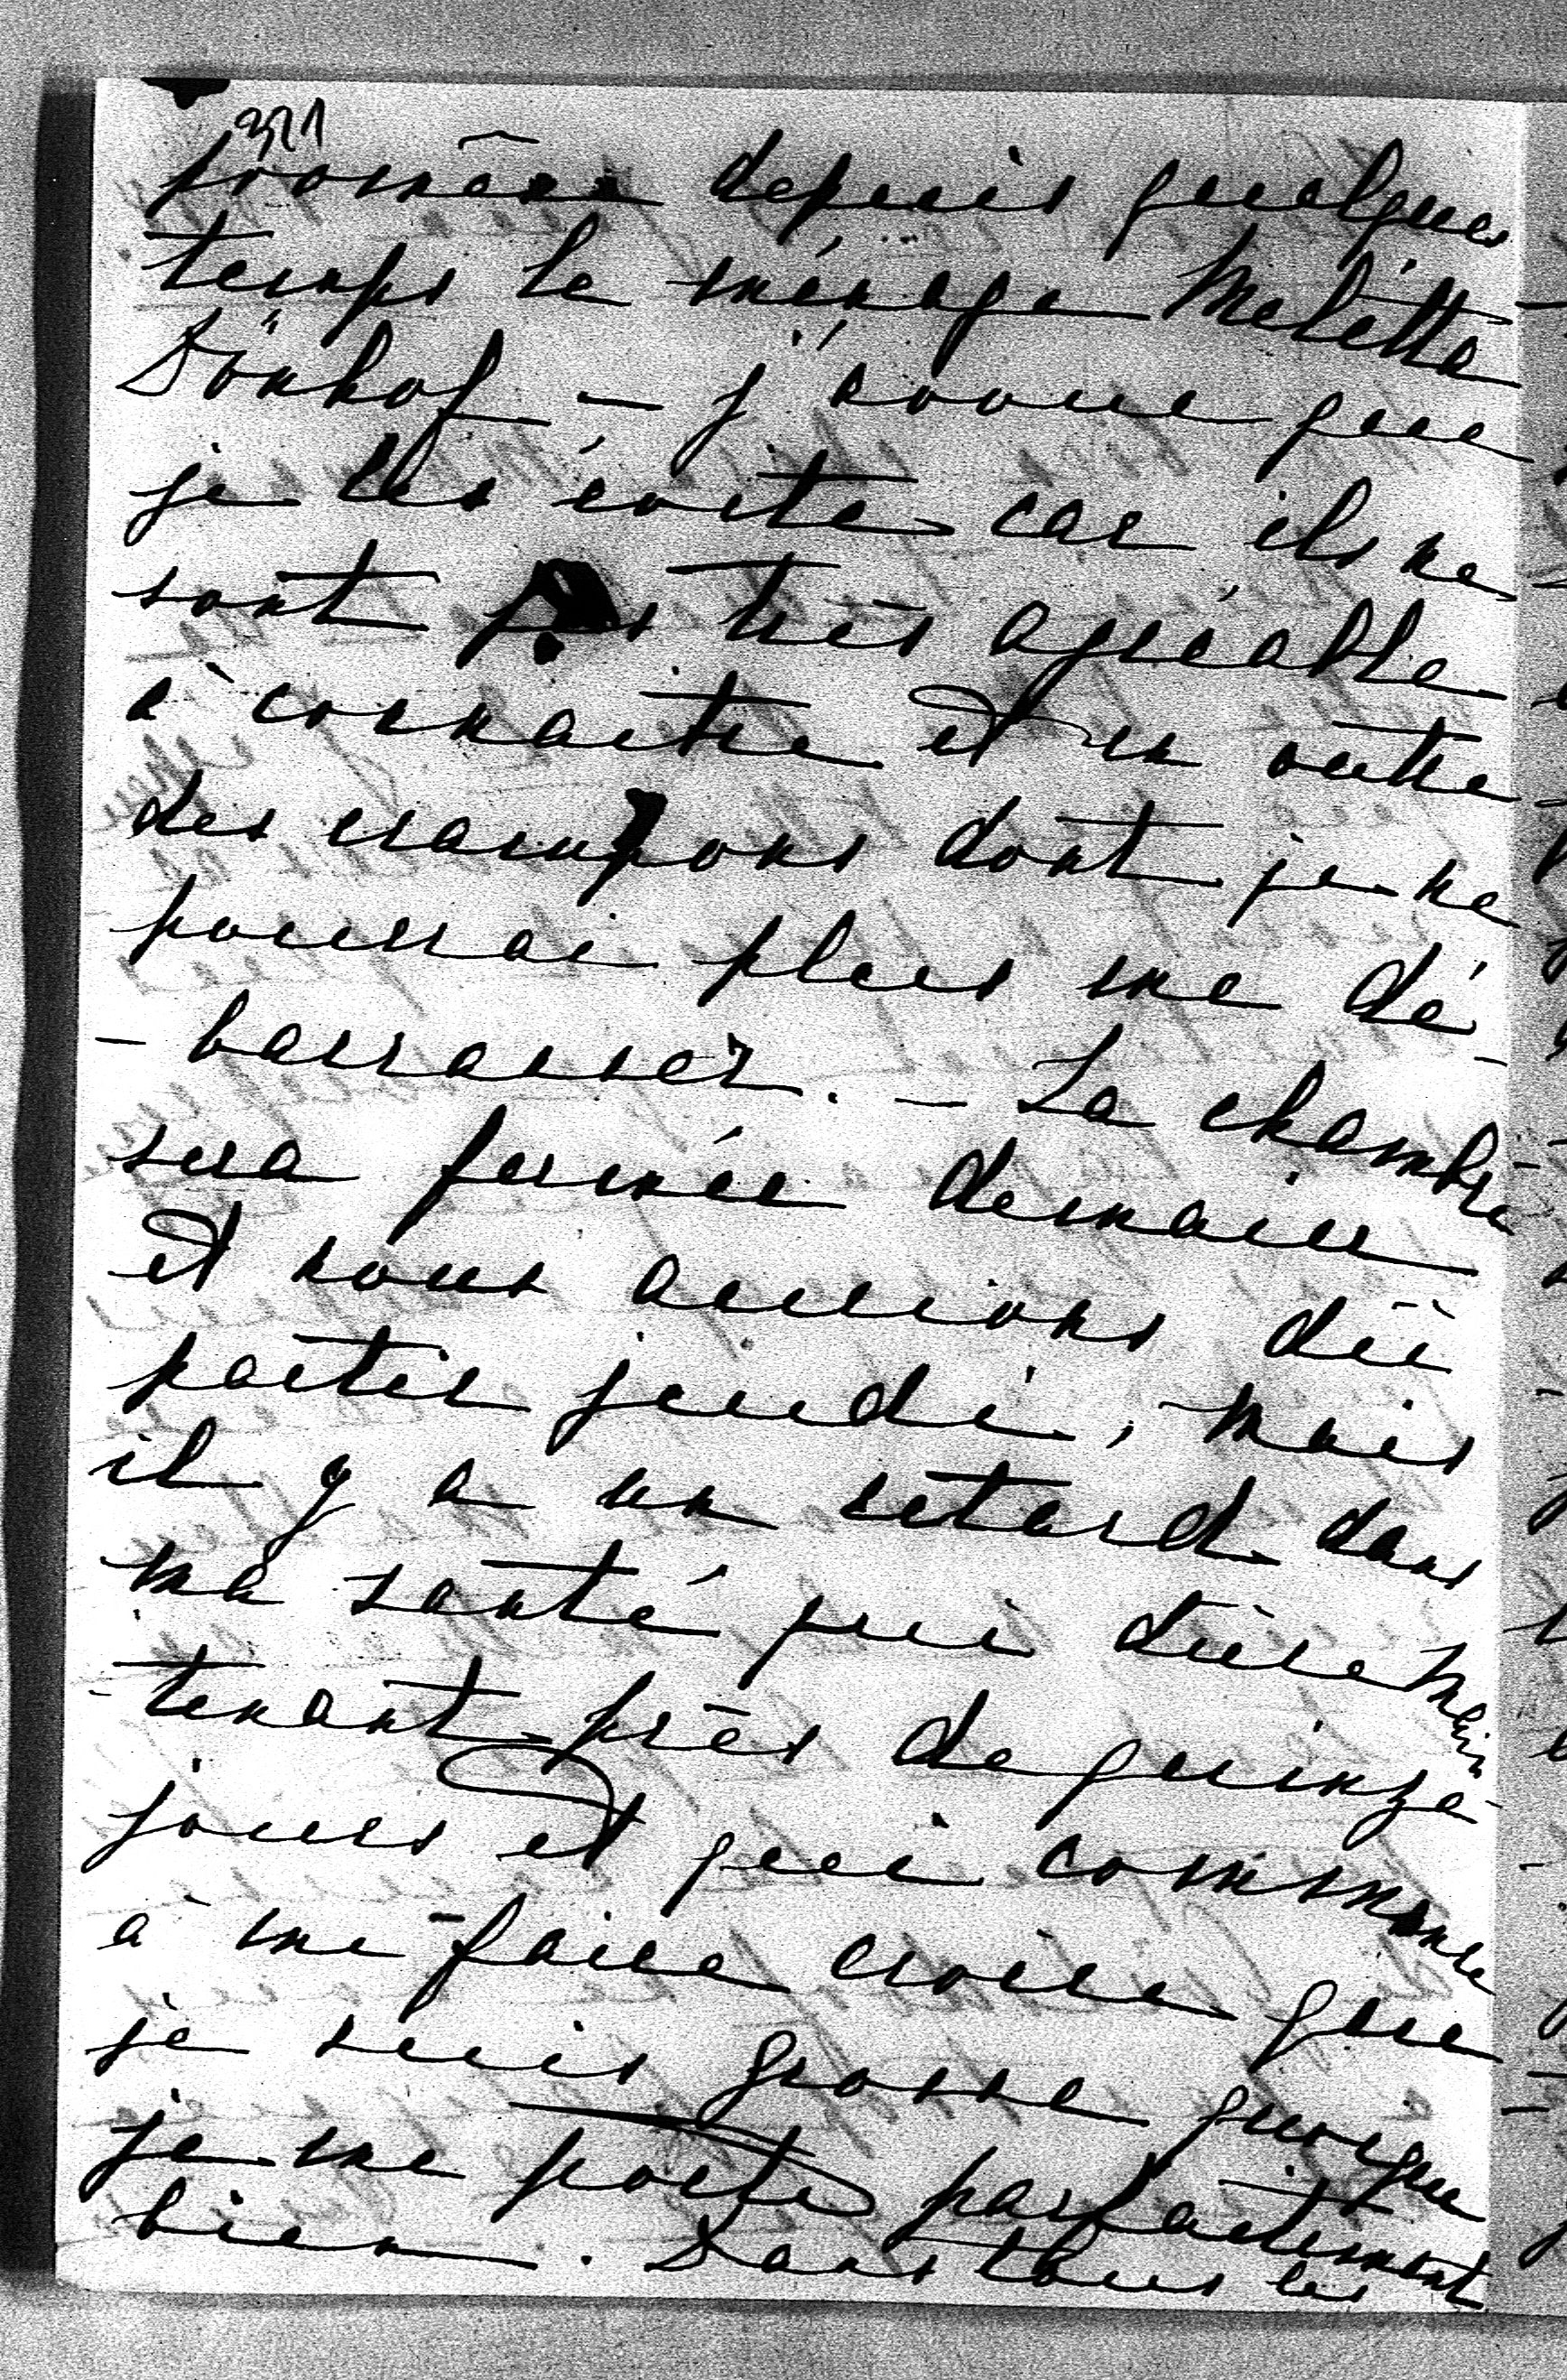 321
promêne depuis quelques
temps le ménage Melitta
Dönhof — j'avoue que
je les évite car ils ne
sont pas très agréable
à connaitre et en outre
des crampons dont je ne
pourrai plus me dé-
-barrasser. — La chambre
sera fermée demain
et nous aurions dû
partir jeudi, mais
il y a un retard dans
ma santé qui dûre main
-tenant près de quinze
jours et qui commence
à me faire croire que
je suis grosse quoique
je me porte parfaitement
bien. Dans tous les